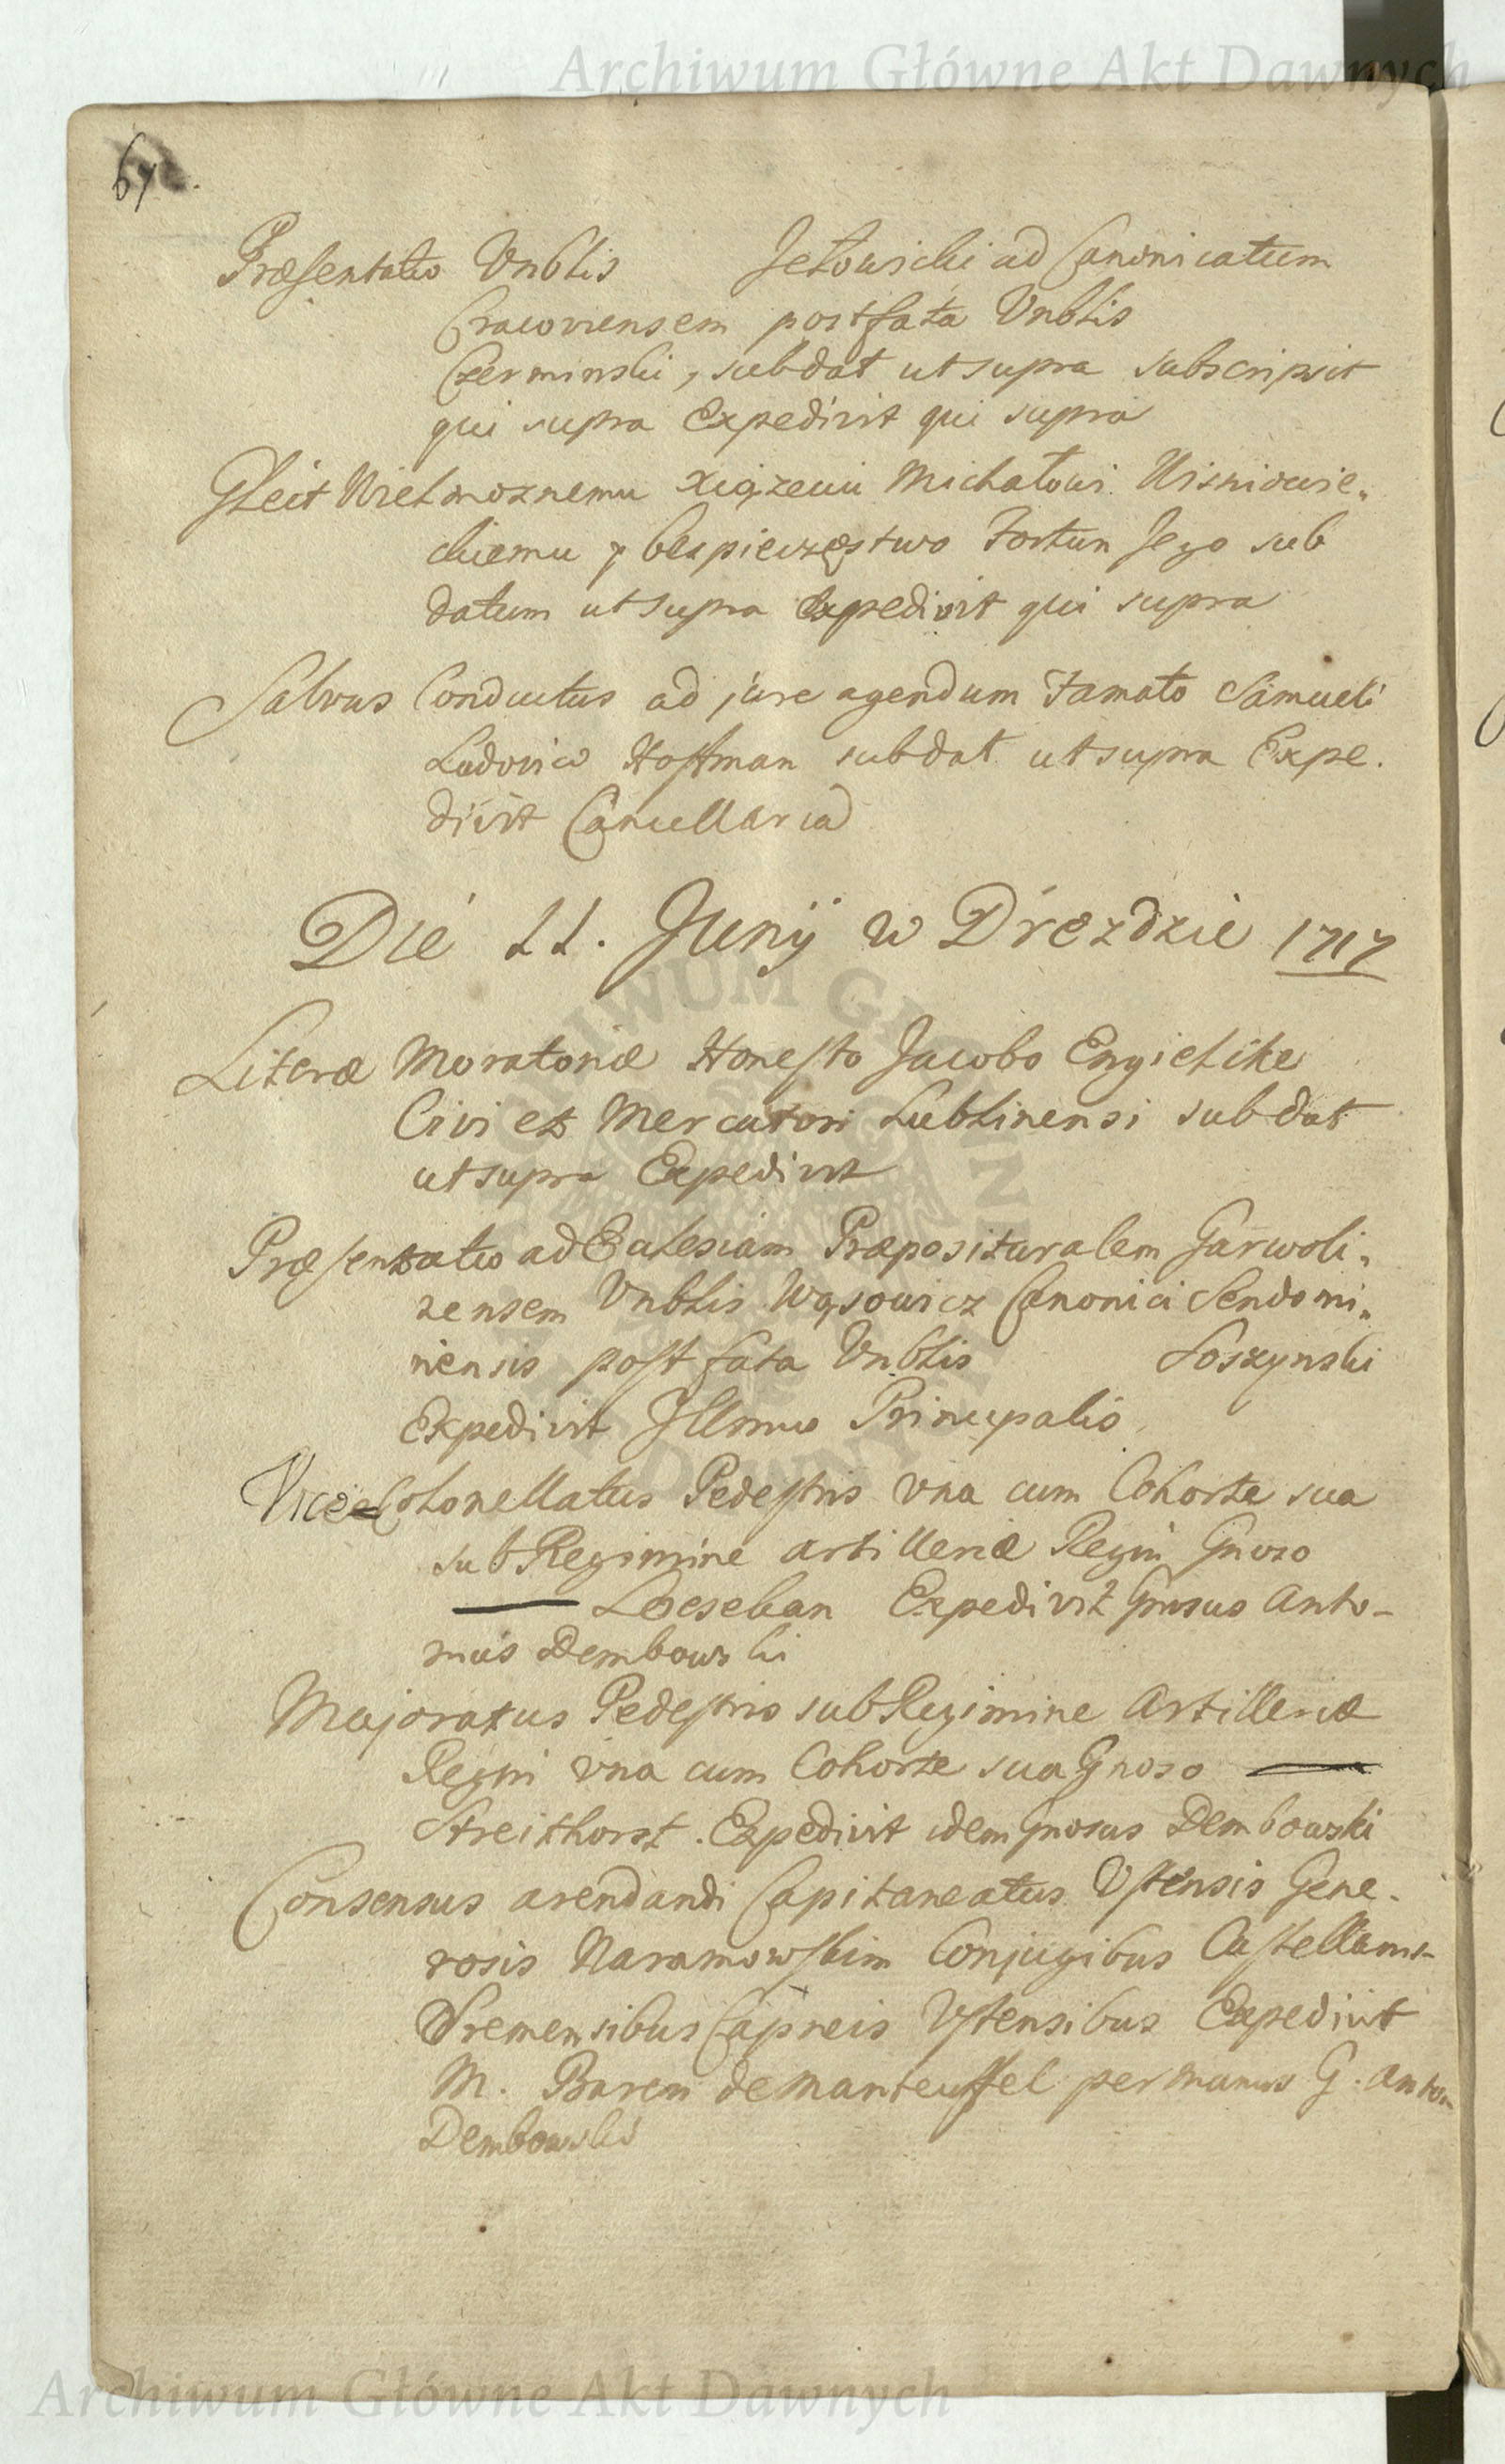 Archiwum Główne Akt Dawnych
67
Præsentatio Vnblis Jełowicki ad Canonicatum
Cracoviensem post fata Vnblis
Czerminski, sub dat ut supra subscripsit
qui supra Expedivit qui supra
Gleit Wielmoznemu Xiązęciu Michałowi Wisniowie,
ckiemu y bespieczęstwo Fortun Jego sub
datum ut supra Expedivit qui supra
Salvus Conductus ad jure agendum Famato Samueli
Ludovico Hoffman sub dat ut supra Expe.
divit Cancellaria
Die 11. Junij w Drezdzie 1717
Literæ Moratoriæ Honesto Jacobo Engielike
Civi et Mercatori Lublinensi sub dat
ut supra Expedivit
Præsentatio ad Eclesiam Præposituralem Garwoli,
zensem Vnblis Wąsowicz Canonici Sendomi,
riensis post fata Vnblis Soszynski
Expedivit Illsmus Principalis
Vice Colonellatus Pedestris vna cum Cohorte sua
sub Regimine Artilleriæ Regni Gnoso
Loeseban Expedivit Gnosus Anto-
nius Dembowski
Majoratus Pedestris sub Regimine Artilleriæ
Regni vna cum Cohorte sua Gnoso
Streithorst. Expedivit idem Gnosus Dembowski
Consensus arendandi Capitaneatus Ustensis Gene.
rosis Naramowskim Conjugibus Castellanis
Sremensibus Capneis Ustensibus Expedivit
M. Baron de Manteuffel per manus G. Anton
Dembowski
Archiwum Główne Akt Dawnych